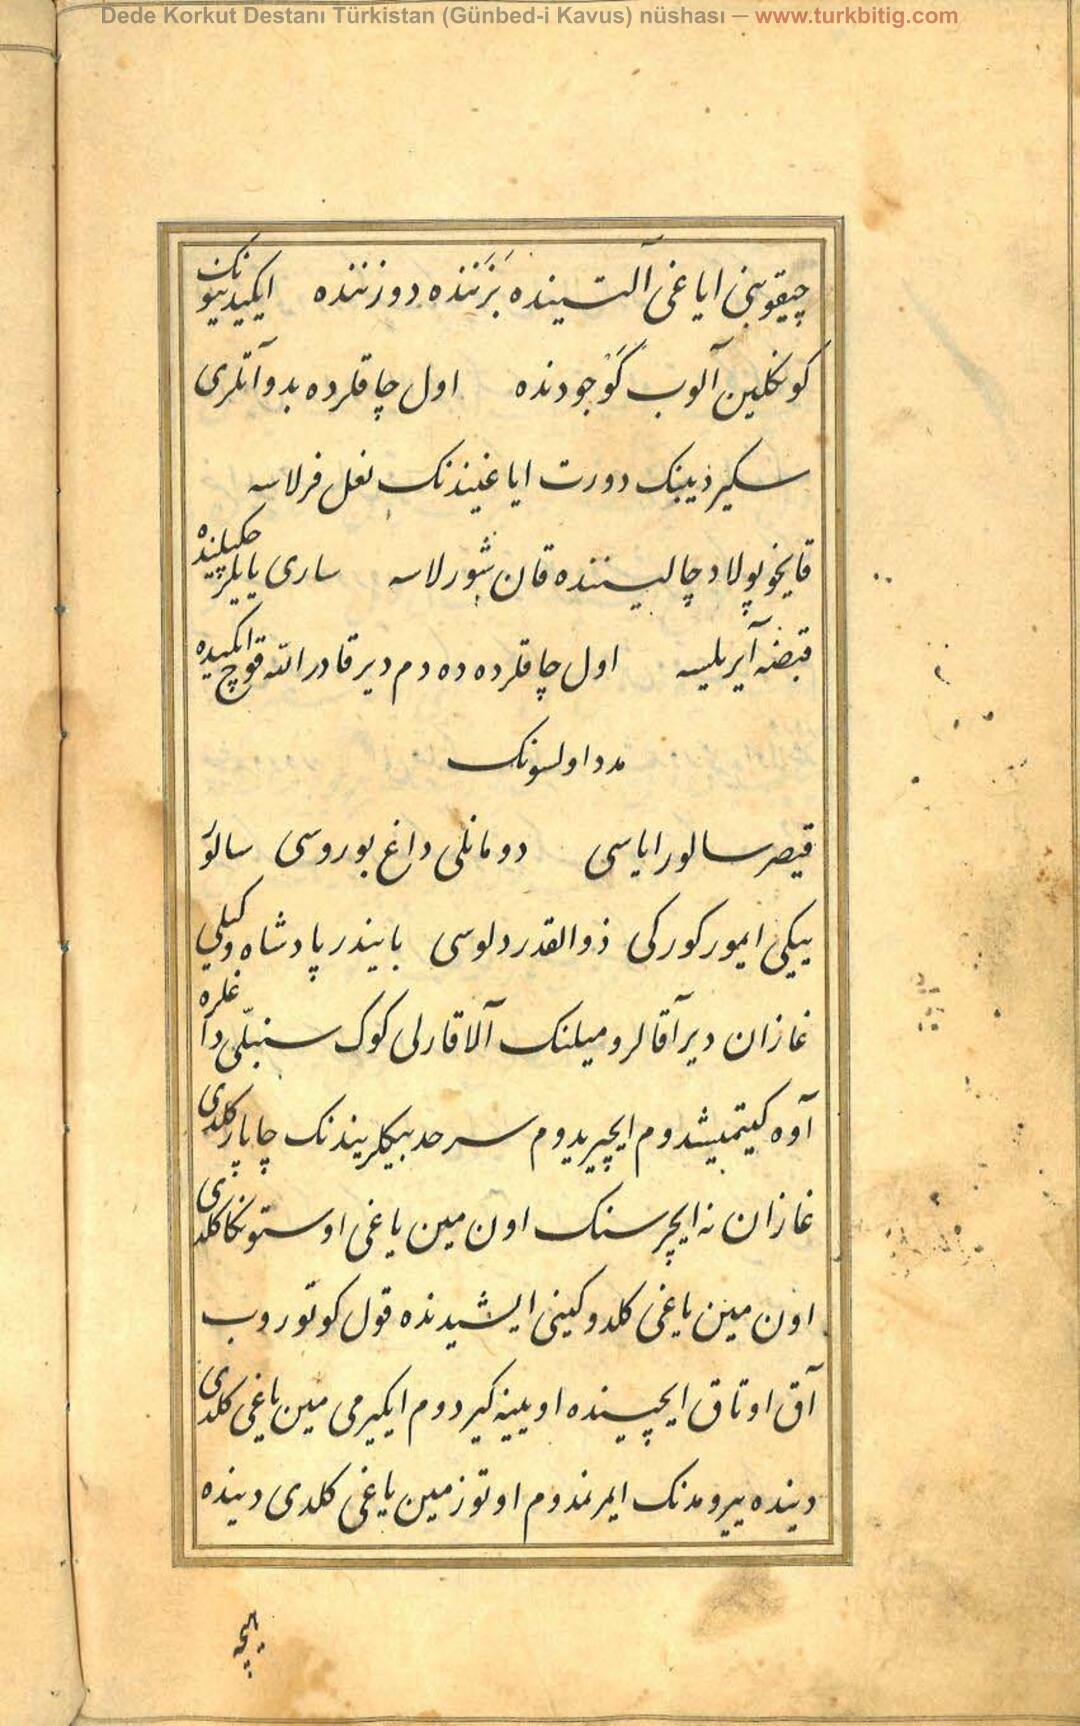 Dede Korkut Destanı Türkistan (Günbed-i Kavus) nüshası — www.turkbitig.com
چیقوبنی ایاغی آلتینده بَزَننده دوزننده ایکیدینیونک
کونکلین آلوب گوجودنده اول چاقلرده بدو آتلری
سکیردیبنک دورت ایاغیندنک نعل فرلاسه
قایخو پولاد چالیسننده قان شورلاسه ساری یایلر چکیلینده
قبضه آیریلیسه اول چاقلرده ده دم دیر قادر الله قوچ ایکیده
مدد اولسونک
قیصر سالور ایاسی دومانلی داغ بوروسی سالوَر
بیکی ایمور کورکی ذوالقدر دلوسی بایندر پادشاه وکیلی
غازان دیر آقالروم یلنک آلا قارلی کوک سنبلّی داغلره
آوه کیتمیشدوم ایچریدوم سرحد بیکلریندنک چاپار کلدی
غازان نه ایچرسنک اون مین یاغی اوستونکا کلدی
اون مین یاغی کلدوکینی ایشیدنده قول کوتوروب
آق اوتاق ایچینده اویینه کیردوم ایکیرمی مین یاغی کلدی
دینده ییرومدنک ایمرنمدوم اوتوز مین یاغی کلدی دینده
هیچه